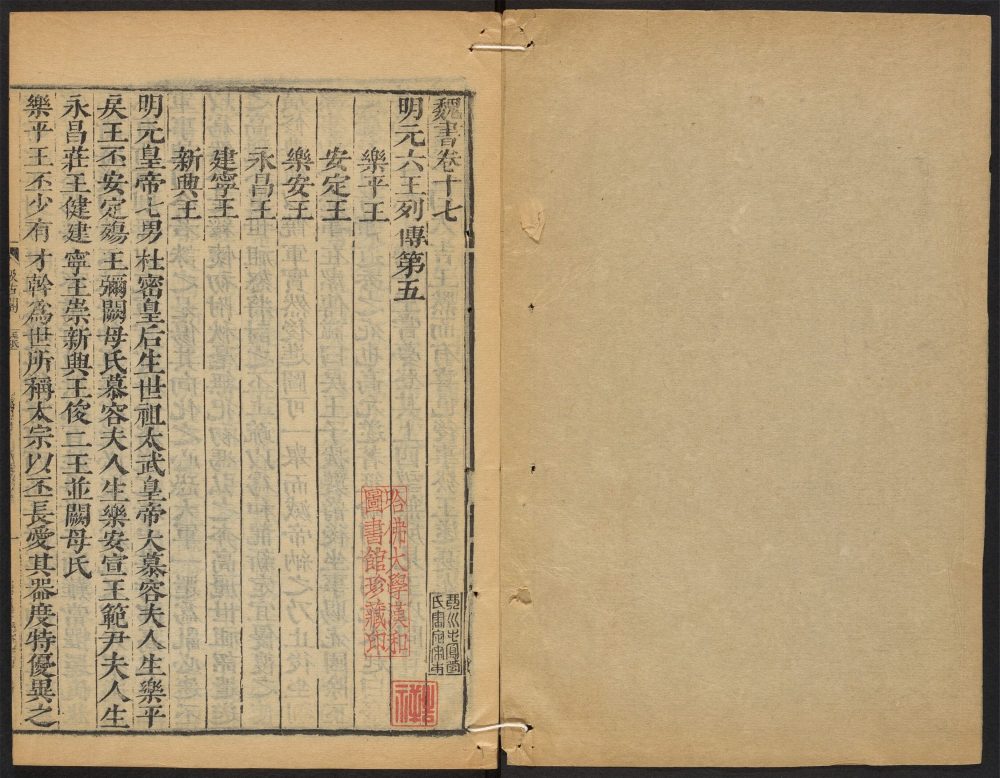 魏書卷十七
明元六王列傳第五
樂平王
安定王
樂安王
永昌王
建寧王
新興王
明元皇帝七男杜密皇后生世祖太武皇帝大慕容夫人生樂平
戾王丕安定殤王彌闕母氏慕容夫人生樂安宣王範尹夫人生
永昌莊王健建寧王崇新興王俊二王並闕母氏
樂平王丕少有才幹為世所稱太宗以丕長愛其器度特優異之
哈佛大學漢和
圖書館珍藏印